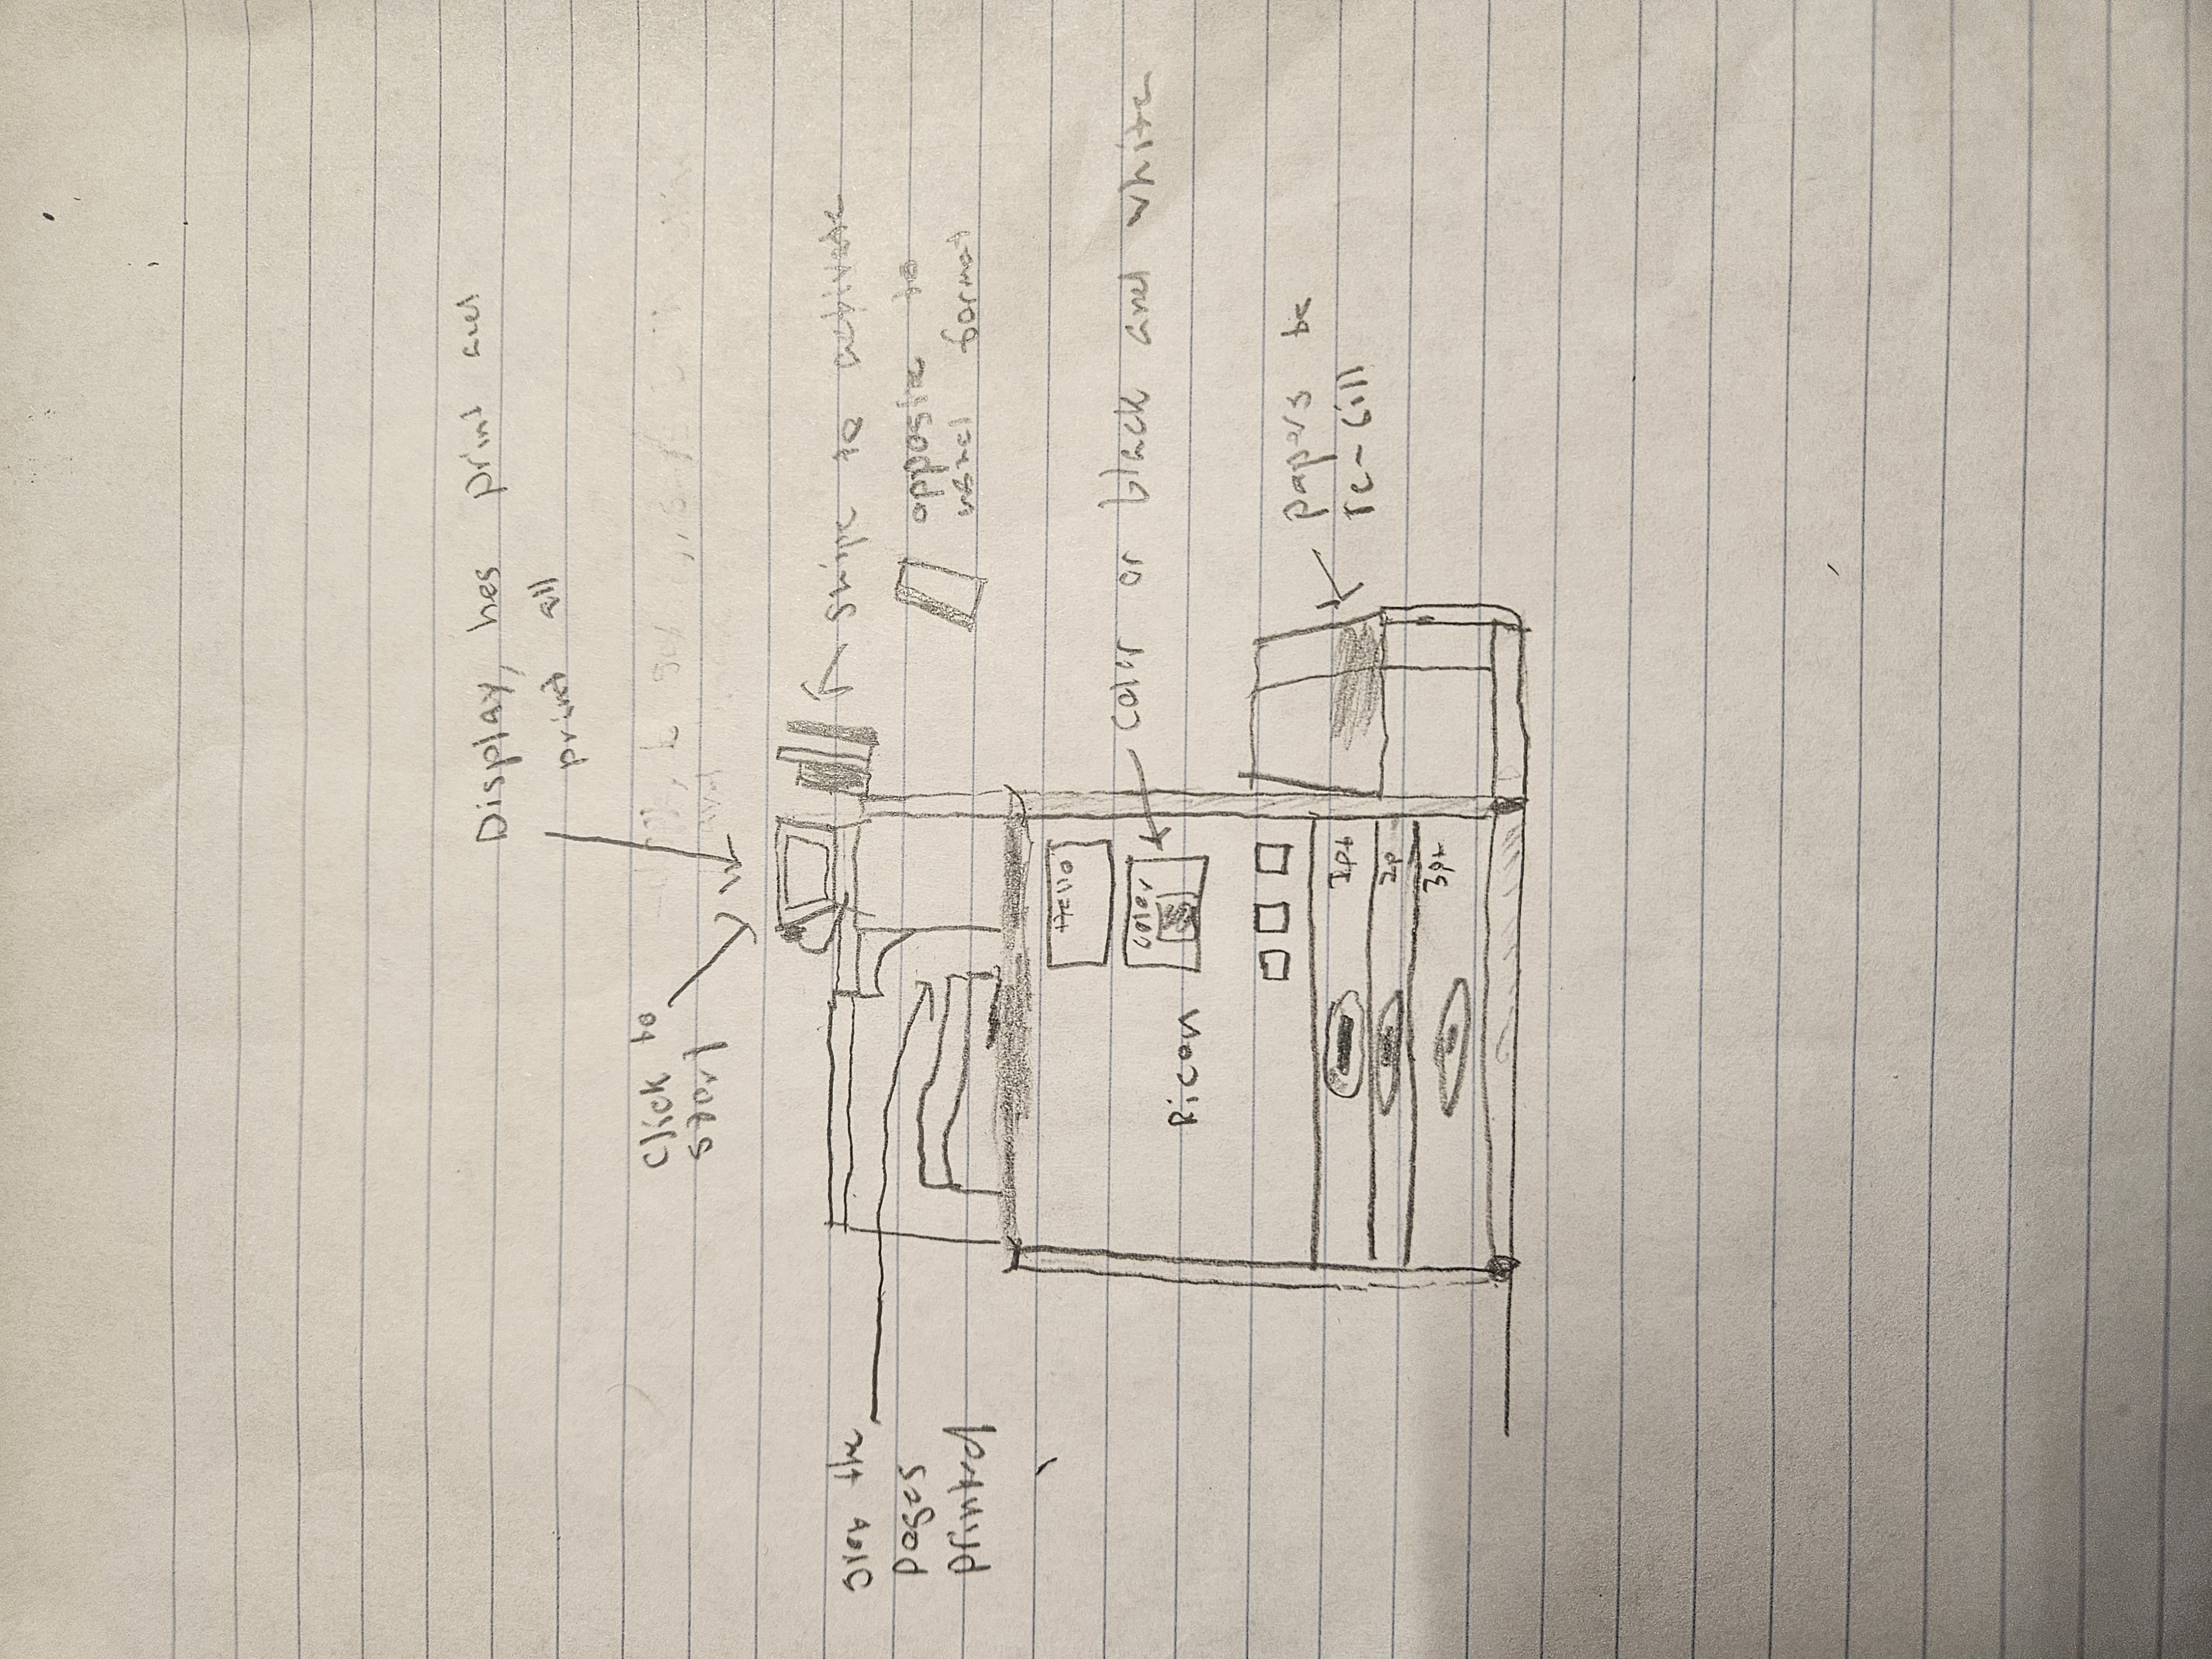 Display, hes print and
print all
Click to
start
Grab the
pages
printed
Swipe to activate
opposite to
usual format
Hello
Color
color or black and white
Ricon
1pt
2p
3pt
papers to
re-fill